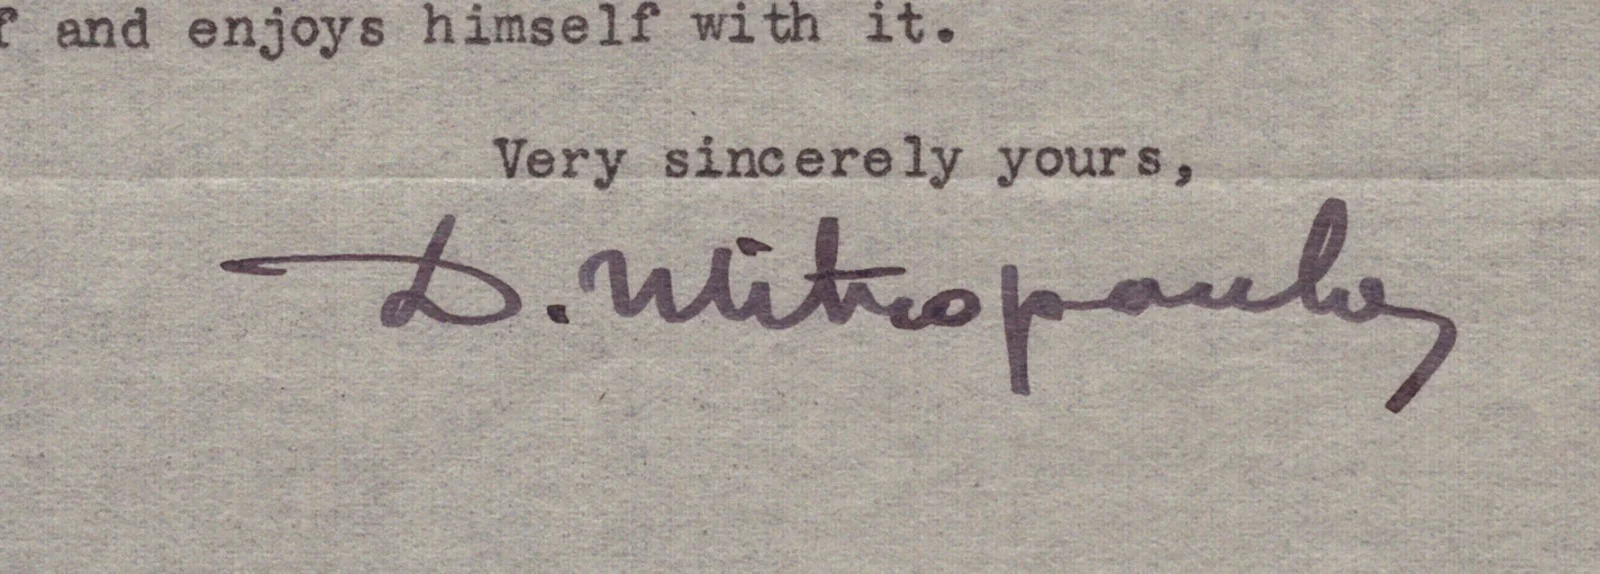 f and enjoys himself with it.
Very sincerely yours,
D. Mitropoulos